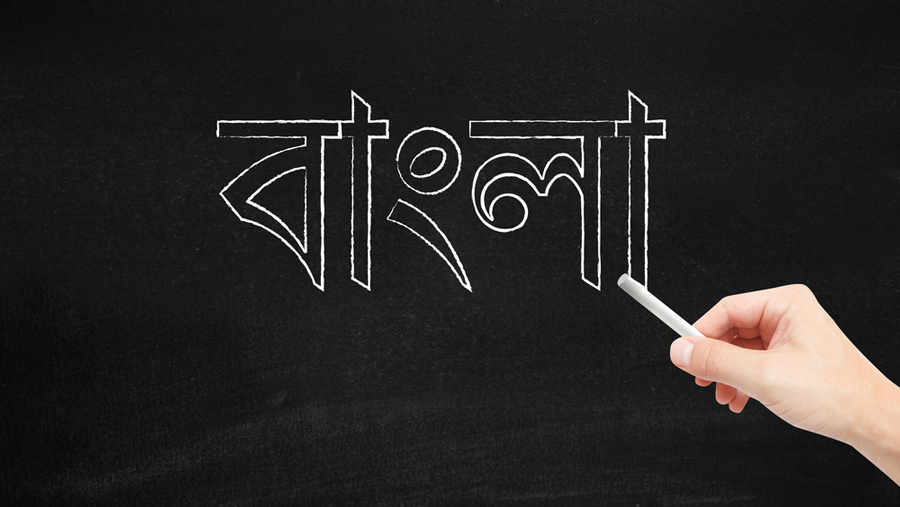 বাংলা